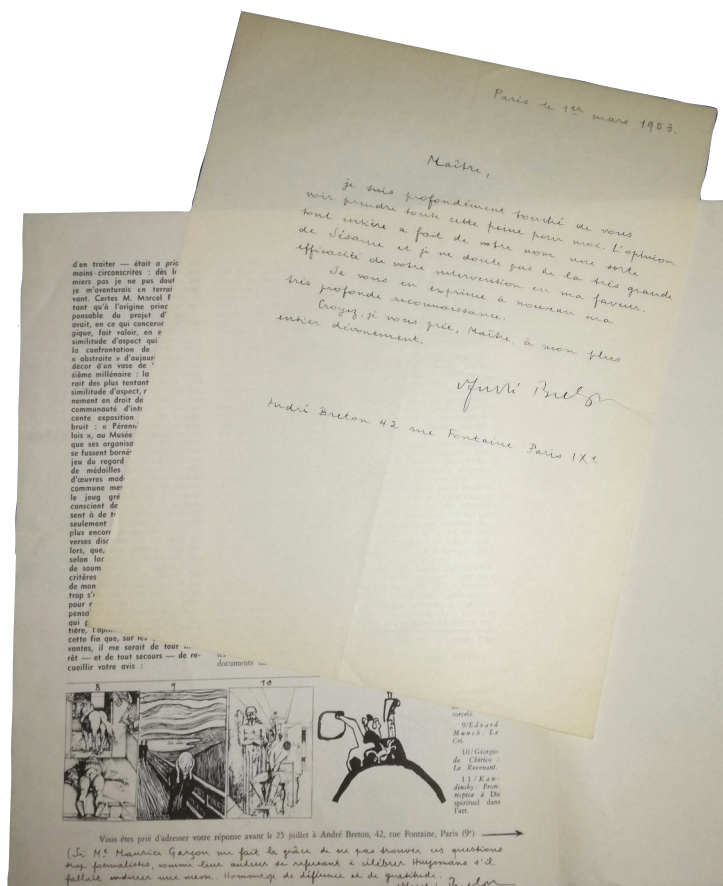 Paris le 1er mars 1953.
Maître,
je suis profondément touché de vous
voir prendre toute cette peine pour moi. L'opinion
tout entière a fait de votre nom une sorte
de Sésame et je ne doute pas de la très grande
efficacité de votre intervention en ma faveur.
Je vous en exprime à nouveau ma
très profonde reconnaissance.
Croyez, je vous prie, Maître, à mon plus
entier dévouement.
André Breton
André Breton 42 rue Fontaine Paris IXe
d'en traiter — était a prio
moins circonscrites : dès l
miers pas je ne pus dout
je m'aventurais en terrai
vant. Certes M. Marcel
tant qu'à l'origine
ponsable du projet d'
avait, en ce qui concerna
gique, fait valoir, en e
similitude d'aspect qui
la confrontation de
« abstraite » d'aujour
décor d'un vase de
sième millénaire : la
rait des plus tentant
similitude d'aspect, r
nement en droit de
communauté d'int
cente exposition
bruit : « Pérenn
lois », au Musée
que ses organisa
se fussent borné
jeu du regard
de médailles
d'œuvres mod
commune me
le joug gré
conscient de
sent à de t
seulement
plus encor
verses disc
lors, que,
selon lac
de soum
critères
de mon
trop s'
pour r
pensa
qui
tière, l'opi
cette fin que, sur les
vantes, il me serait de tout
rêt — et de tout secours — de re-
cueillir votre avis :
documents
8 9 10
torcelé.
9/Edvard
Munch : Le
Cri.
10/Giorgio
de Chirico :
Le Revenant.
11/Kan-
dinsky : Fron-
tispice à Du
spirituel dans
l'art.
Vous êtes prié d'adresser votre réponse avant le 25 juillet à André Breton, 42, rue Fontaine, Paris (9e)
(Si Me Maurice Garçon me fait la grâce de ne pas trouver ces questions
trop formalistes, comme leur auteur se refusant à célébrer Huysmans s'il
fallait endurer une messe. Hommage de déférence et de gratitude.
André Breton